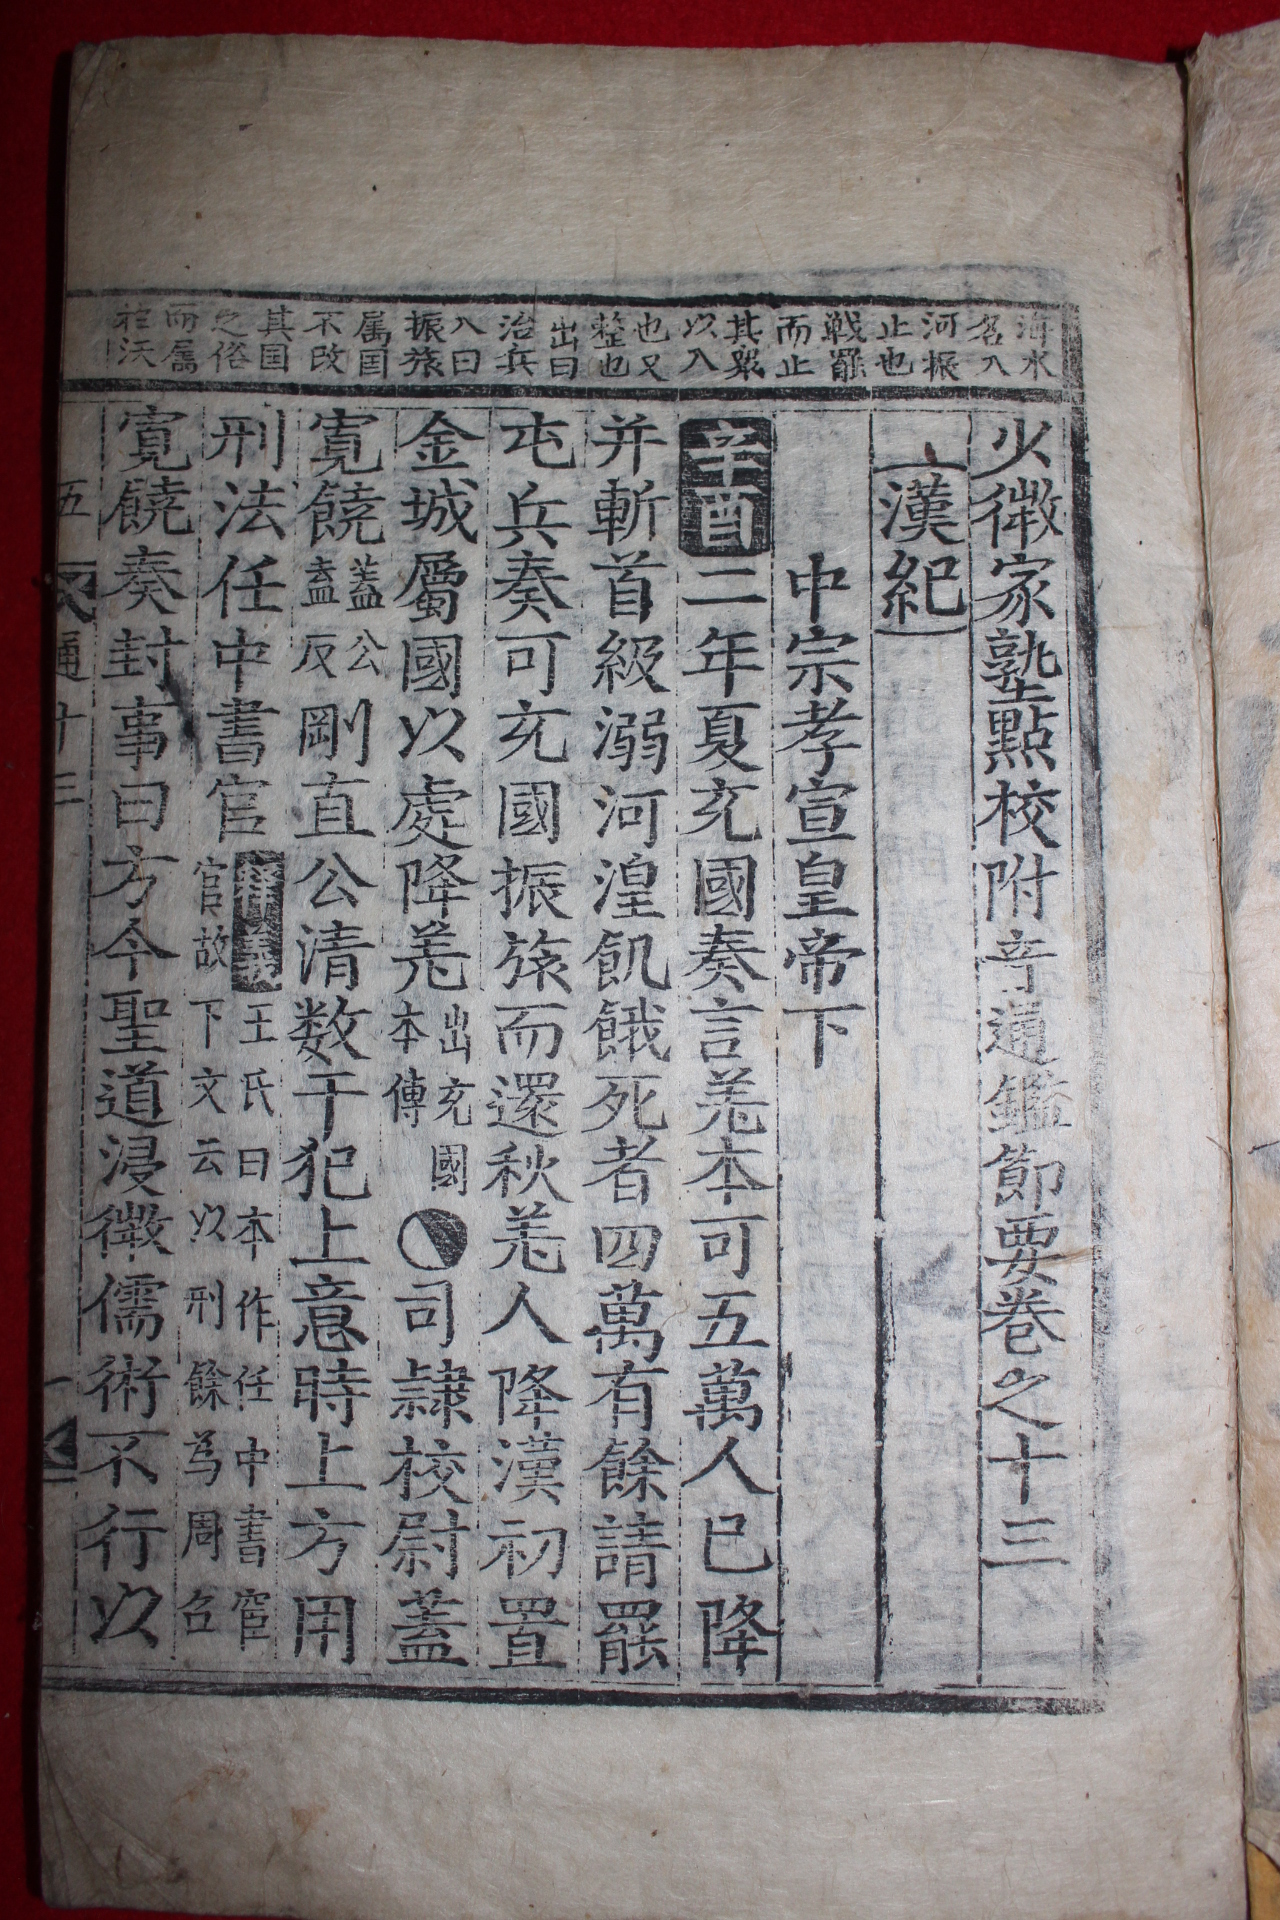 海水
名入
河振
止也
戦罷
而止
其衆
以入
也又
整也
出曰
治兵
入曰
振旅
属国
不改
其国
之俗
而属
於汉
少微家塾點校附音通鑑節要卷之十三
漢紀
中宗孝宣皇帝下
辛酉二年夏充國奏言羌本可五萬人已降
并斬首級溺河湟飢餓死者四萬有餘請罷
屯兵奏可充國振旅而還秋羌人降漢初置
金城屬國以處降羌出充國本傳司隷校尉蓋
寬饒蓋公盍反剛直公清数干犯上意時上方用
刑法任中書官釋義王氏曰本作任中書宦官故下文云以刑餘為周召
寬饒奏封事曰方今聖道浸微儒術不行以
通十三
一